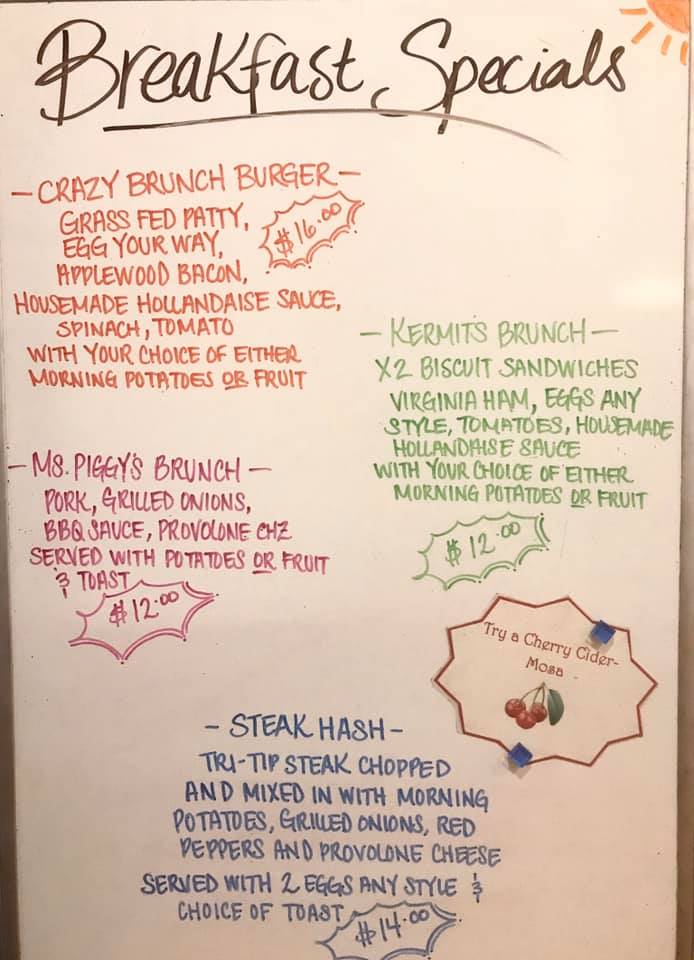 Breakfast Specials
- CRAZY BRUNCH BURGER -
GRASS FED PATTY,
EGG YOUR WAY,
APPLEWOOD BACON,
HOUSEMADE HOLLANDAISE SAUCE,
SPINACH, TOMATO
WITH YOUR CHOICE OF EITHER
MORNING POTATOES OR FRUIT
$16.00
- KERMIT'S BRUNCH -
X2 BISCUIT SANDWICHES
VIRGINIA HAM, EGGS ANY
STYLE, TOMATOES, HOUSEMADE
HOLLANDAISE SAUCE
WITH YOUR CHOICE OF EITHER
MORNING POTATOES OR FRUIT
$12.00
- MS. PIGGY'S BRUNCH -
PORK, GRILLED ONIONS,
BBQ SAUCE, PROVOLONE CHZ
SERVED WITH POTATOES OR FRUIT
& TOAST
$12.00
Try a Cherry Cider-
Mosa
- STEAK HASH -
TRI-TIP STEAK CHOPPED
AND MIXED IN WITH MORNING
POTATOES, GRILLED ONIONS, RED
PEPPERS AND PROVOLONE CHEESE
SERVED WITH 2 EGGS ANY STYLE &
CHOICE OF TOAST
$14.00